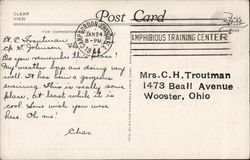 CLEAR
VIEW
Post Card
FOR CORRESPONDENCE
CAMP GORDON JOHNSTON
JAN 24
8-PM
AMPHIBIOUS TRAINING CENTER
C. Troutman
Johnson
Do you remember this place?
My weather boys are doing very
well. It has been a gorgeous
evening. This is really some
place, at least while it is
cool. Sure wish you were
here. Oh me!
Chas.
Mrs.C.H.Troutman
1473 Beall Avenue
Wooster, Ohio